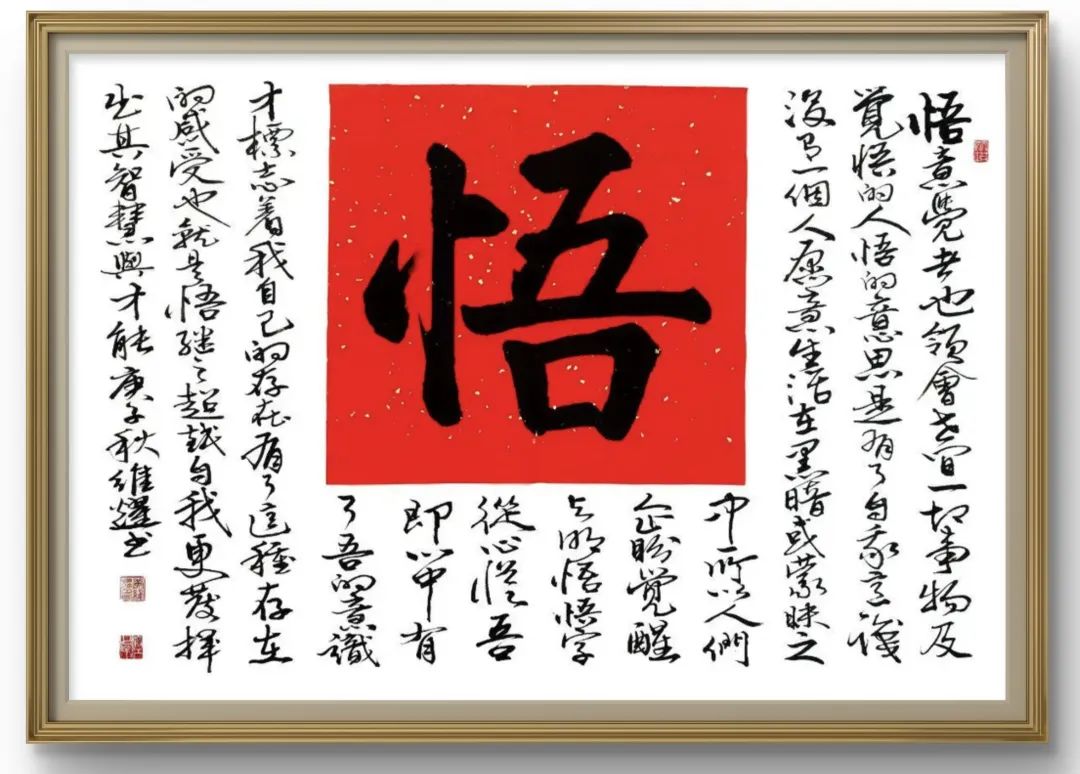 悟意覺者也領會世间一切事物及
覺悟的人悟的意思是有了自我意識
沒有一個人愿意生活在黑暗或蒙昧之
悟
中所以人們
企盼覺醒
与明悟悟字
從心從吾
即心中有
了吾的意識
才標志着我自己的存在有了這種存在
的感受也就是悟繼之超越自我更發揮
出其智慧與才能庚子秋維耀书